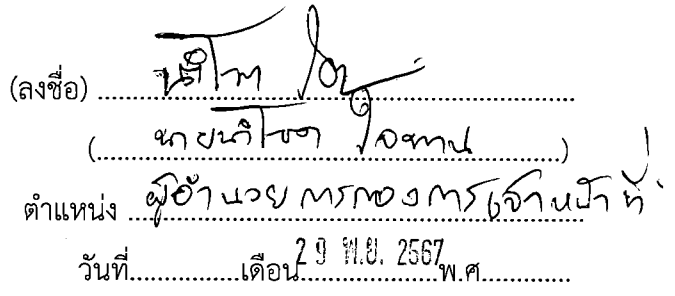 (ลงชื่อ)
(นายนำโชค ใจทาน)
ตำแหน่ง ผู้อำนวยการกองการเจ้าหน้าที่
วันที่ เดือน 29 พ.ย. 2567 พ.ศ.